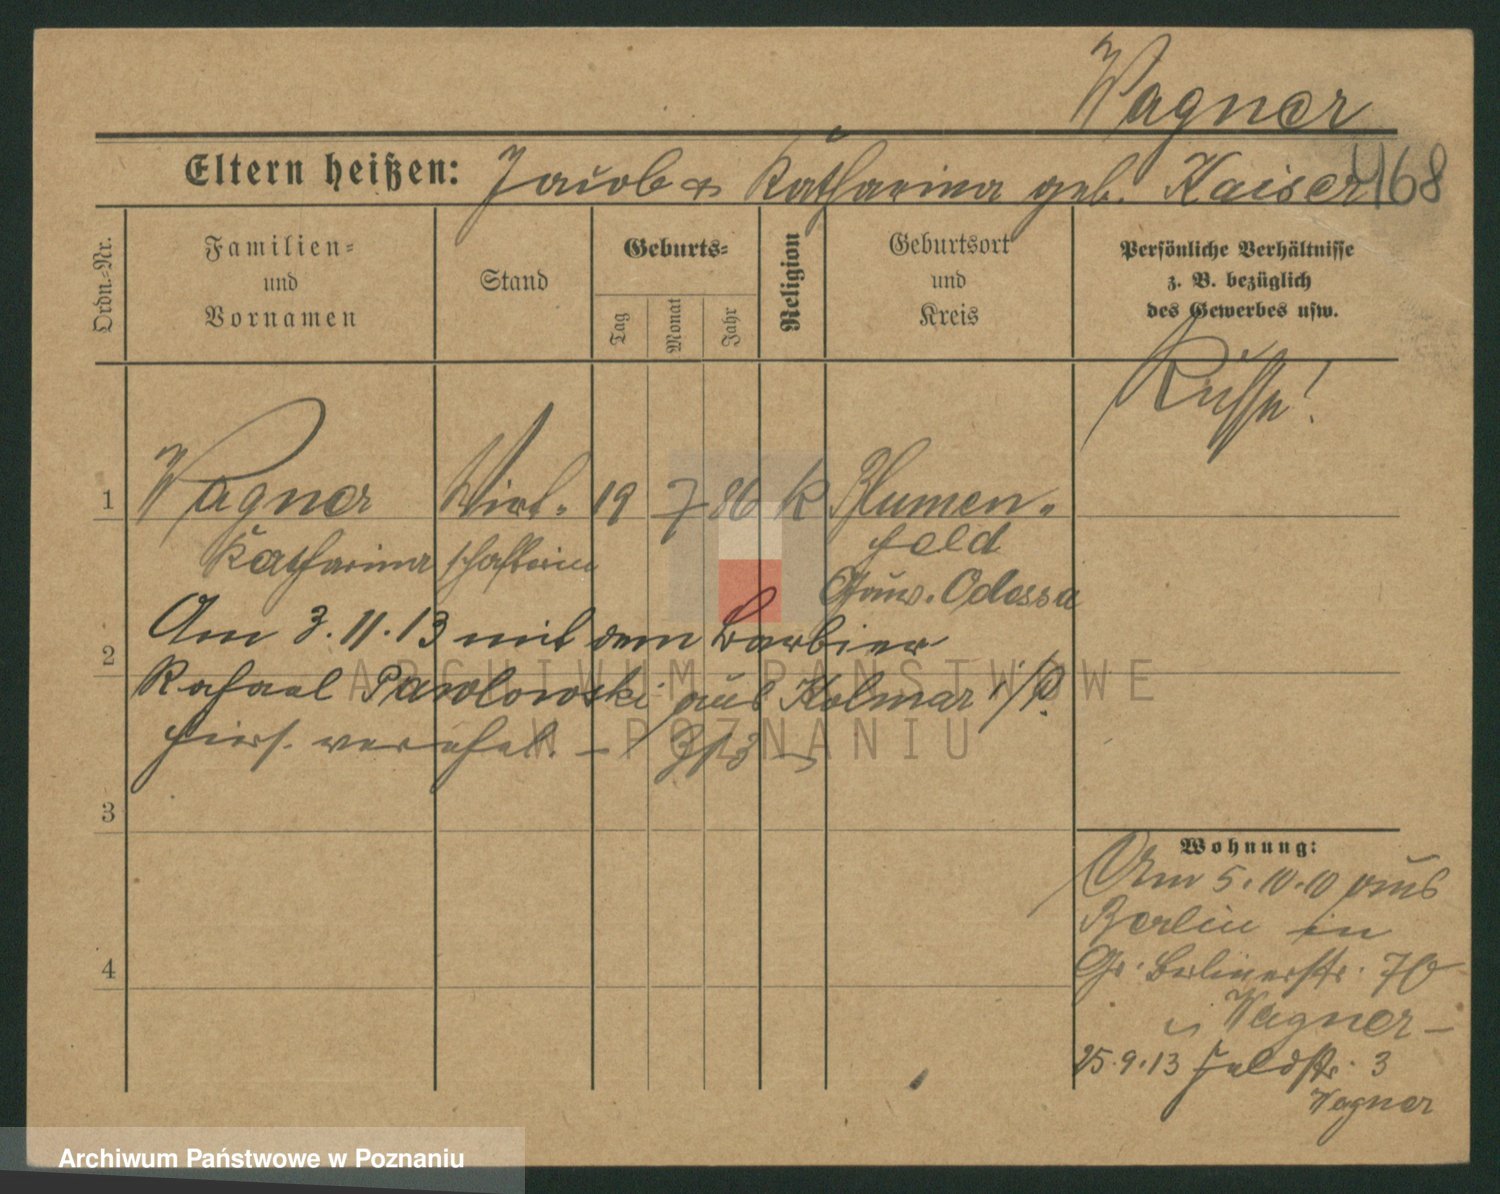 Wagner
Eltern heißen: Jacob & Katharina geb. Kaiser 468
Ordn.-Nr.
Familien-
und
Vornamen
Stand
Geburts-
Tag
Monat
Jahr
Religion
Geburtsort
und
Kreis
Persönliche Verhältnisse
z. B. bezüglich
des Gewerbes usw.
Russe!
1 Wagner Wirt- 19 7 86 K Blumen-
Katharina schafterin feld
Gouv. Odessa
Am 3.11.13 mit dem Barbier
2
Rafael Pawlowski aus Kolmar i/P.
hiers. verehel. –
3
4
Wohnung:
Am 5.10.10 aus
Berlin in
Gr. Berlinerstr. 70
Wagner –
25.9.13 Feldstr. 3
Wagner
ARCHIWUM PAŃSTWOWE
W POZNANIU
Archiwum Państwowe w Poznaniu